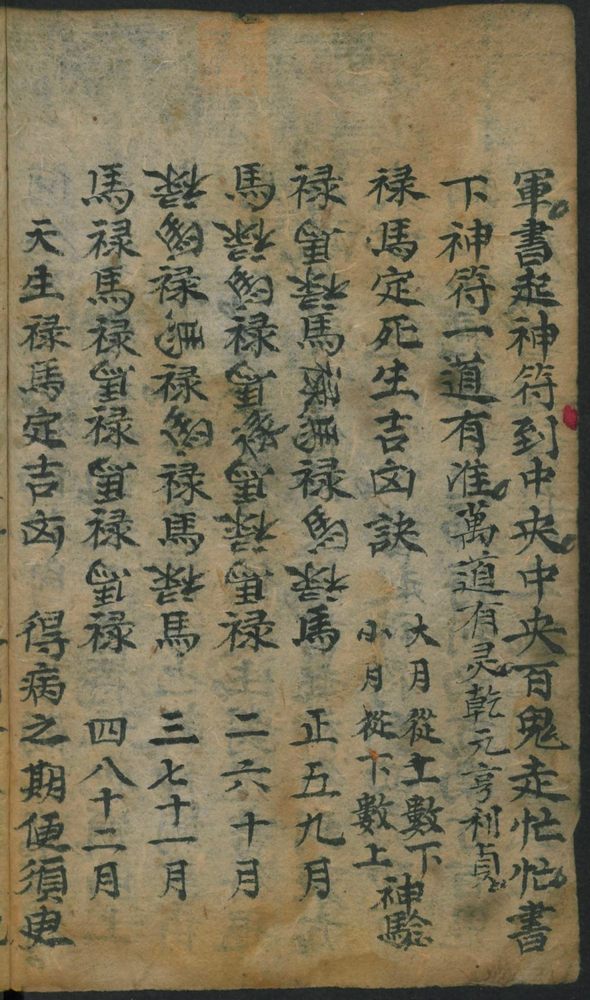 軍書起神符到中央中央百鬼走忙忙書
下神符一道有准萬道有灵乾元亨利貞
禄馬定死生吉凶訣
大月從上數下
小月從下數上
神驗
禄馬禄馬禄馬禄馬禄馬 正五九月
馬禄馬禄馬禄馬禄馬禄 二六十月
禄馬禄馬禄馬禄馬禄馬 三七十一月
馬禄馬禄馬禄馬禄馬禄 四八十二月
天生禄馬定吉凶 得病之期便須臾